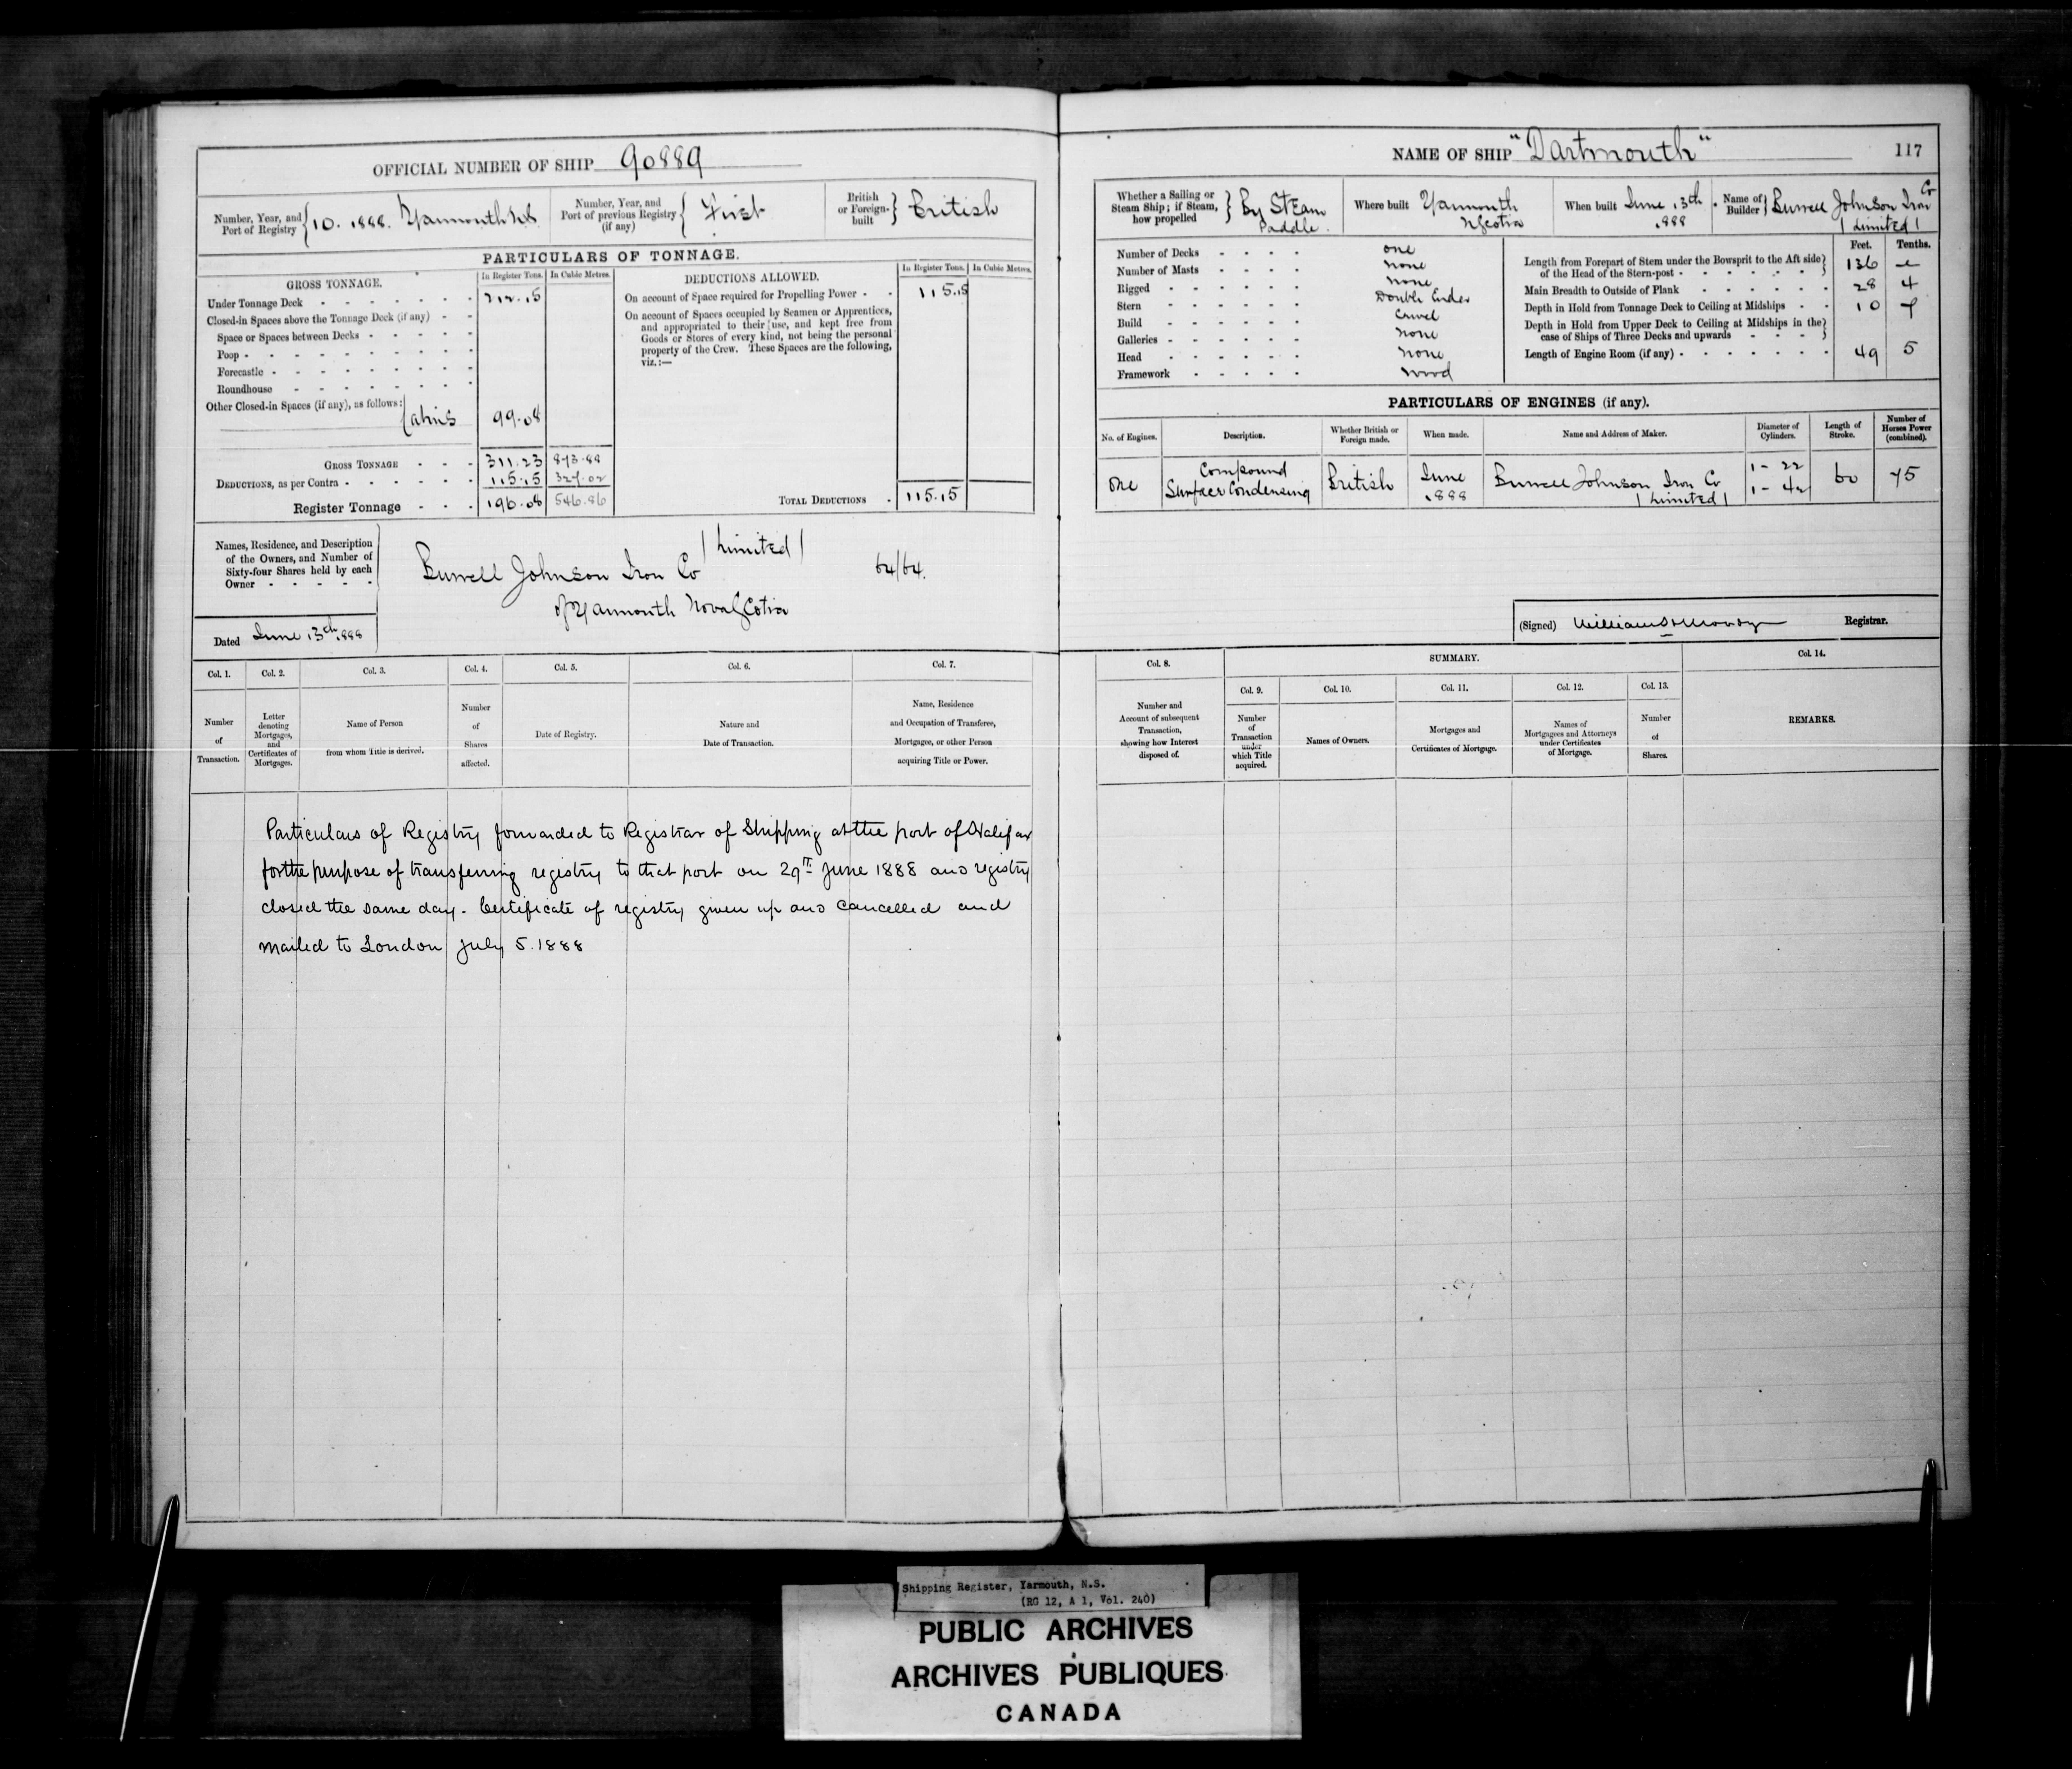 OFFICIAL NUMBER OF SHIP 90889
Number, Year, and Port of Registry { 10. 1888. Yarmouth NS
Number, Year, and Port of previous Registry (if any) { First
British or Foreign-built } British
PARTICULARS OF TONNAGE.
GROSS TONNAGE. In Register Tons. In Cubic Metres.
Under Tonnage Deck 212.15
Closed-in Spaces above the Tonnage Deck (if any)
Space or Spaces between Decks
Poop
Forecastle
Roundhouse
Other Closed-in Spaces (if any), as follows: Cabins 99.08
GROSS TONNAGE 311.23 873.88
DEDUCTIONS, as per Contra 115.15 327.02
Register Tonnage 196.08 546.86
DEDUCTIONS ALLOWED. In Register Tons. In Cubic Metres.
On account of Space required for Propelling Power 115.15
On account of Spaces occupied by Seamen or Apprentices,
and appropriated to their use, and kept free from
Goods or Stores of every kind, not being the personal
property of the Crew. These Spaces are the following,
viz.:—
TOTAL DEDUCTIONS 115.15
Names, Residence, and Description
of the Owners, and Number of
Sixty-four Shares held by each
Owner
Burrell Johnson Iron Co (Limited) 64/64.
of Yarmouth Nova Scotia
Dated June 13th 1888
Col. 1. Col. 2. Col. 3. Col. 4. Col. 5. Col. 6. Col. 7.
Number of Transaction.
Letter denoting Mortgages, and Certificates of Mortgages.
Name of Person from whom Title is derived.
Number of Shares affected.
Date of Registry.
Nature and Date of Transaction.
Name, Residence and Occupation of Transferee, Mortgagee, or other Person acquiring Title or Power.
Particulars of Registry forwarded to Registrar of Shipping at the port of Halifax
for the purpose of transferring registry to that port on 29th June 1888 and registry
closed the same day. Certificate of registry given up and cancelled and
mailed to London July 5. 1888
NAME OF SHIP "Dartmouth" 117
Whether a Sailing or Steam Ship; if Steam, how propelled } By Steam Paddle.
Where built Yarmouth N Scotia
When built June 13th 1888
Name of Builder } Burrell Johnson Iron Co (Limited)
Number of Decks one
Number of Masts none
Rigged none
Stern Double Ender
Build Carvel
Galleries none
Head none
Framework wood
Feet. Tenths.
Length from Forepart of Stem under the Bowsprit to the Aft side
of the Head of the Stern-post 136
Main Breadth to Outside of Plank 28 4
Depth in Hold from Tonnage Deck to Ceiling at Midships 10 7
Depth in Hold from Upper Deck to Ceiling at Midships in the
case of Ships of Three Decks and upwards
Length of Engine Room (if any) 49 5
PARTICULARS OF ENGINES (if any).
No. of Engines. Description. Whether British or Foreign made. When made. Name and Address of Maker. Diameter of Cylinders. Length of Stroke. Number of Horses Power (combined).
one Compound Surface Condensing British June 1888 Burrell Johnson Iron Co (Limited) 1 - 22 1 - 42 60 75
(Signed) Registrar.
Col. 8. SUMMARY. Col. 14.
Col. 9. Col. 10. Col. 11. Col. 12. Col. 13.
Number and Account of subsequent Transaction, showing how Interest disposed of.
Number of Transaction under which Title acquired.
Names of Owners.
Mortgages and Certificates of Mortgage.
Names of Mortgagees and Attorneys under Certificates of Mortgage.
Number of Shares.
REMARKS.
Shipping Register, Yarmouth, N.S.
(RG 12, A 1, Vol. 240)
PUBLIC ARCHIVES
ARCHIVES PUBLIQUES
CANADA